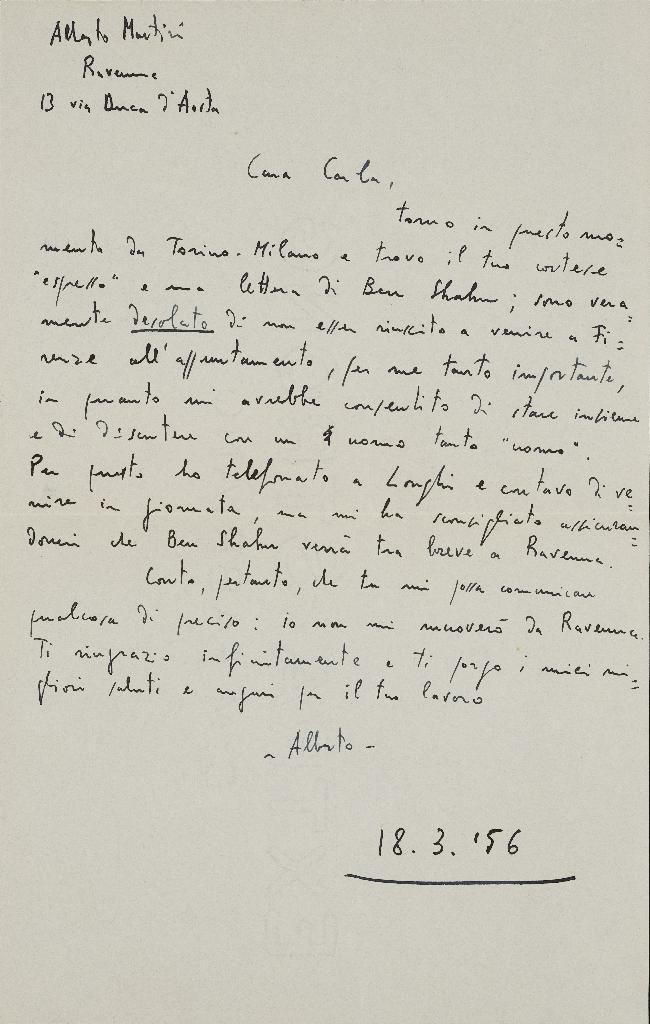 Alberto Martini
Ravenna
13 via Duca d'Aosta
Cara Carla,
torno in questo mo=
mento da Torino-Milano e trovo il tuo cortese
"espresso" e una lettera di Ben Shahn; sono vera=
mente desolato di non esser riuscito a venire a Fi=
renze all'appuntamento, per me tanto importante,
in quanto mi avrebbe consentito di stare insieme
e di discutere con un uomo tanto "uomo".
Per questo ho telefonato a Longhi e contavo di ve=
nire in giornata, ma mi ha sconsigliato assicuran=
domi che Ben Shahn verrà tra breve a Ravenna.
Conto, pertanto, che tu mi possa comunicare
qualcosa di preciso: io non mi muoverò da Ravenna.
Ti ringrazio infinitamente e ti porgo i miei mi=
gliori saluti e auguri per il tuo lavoro
- Alberto -
18.3.'56